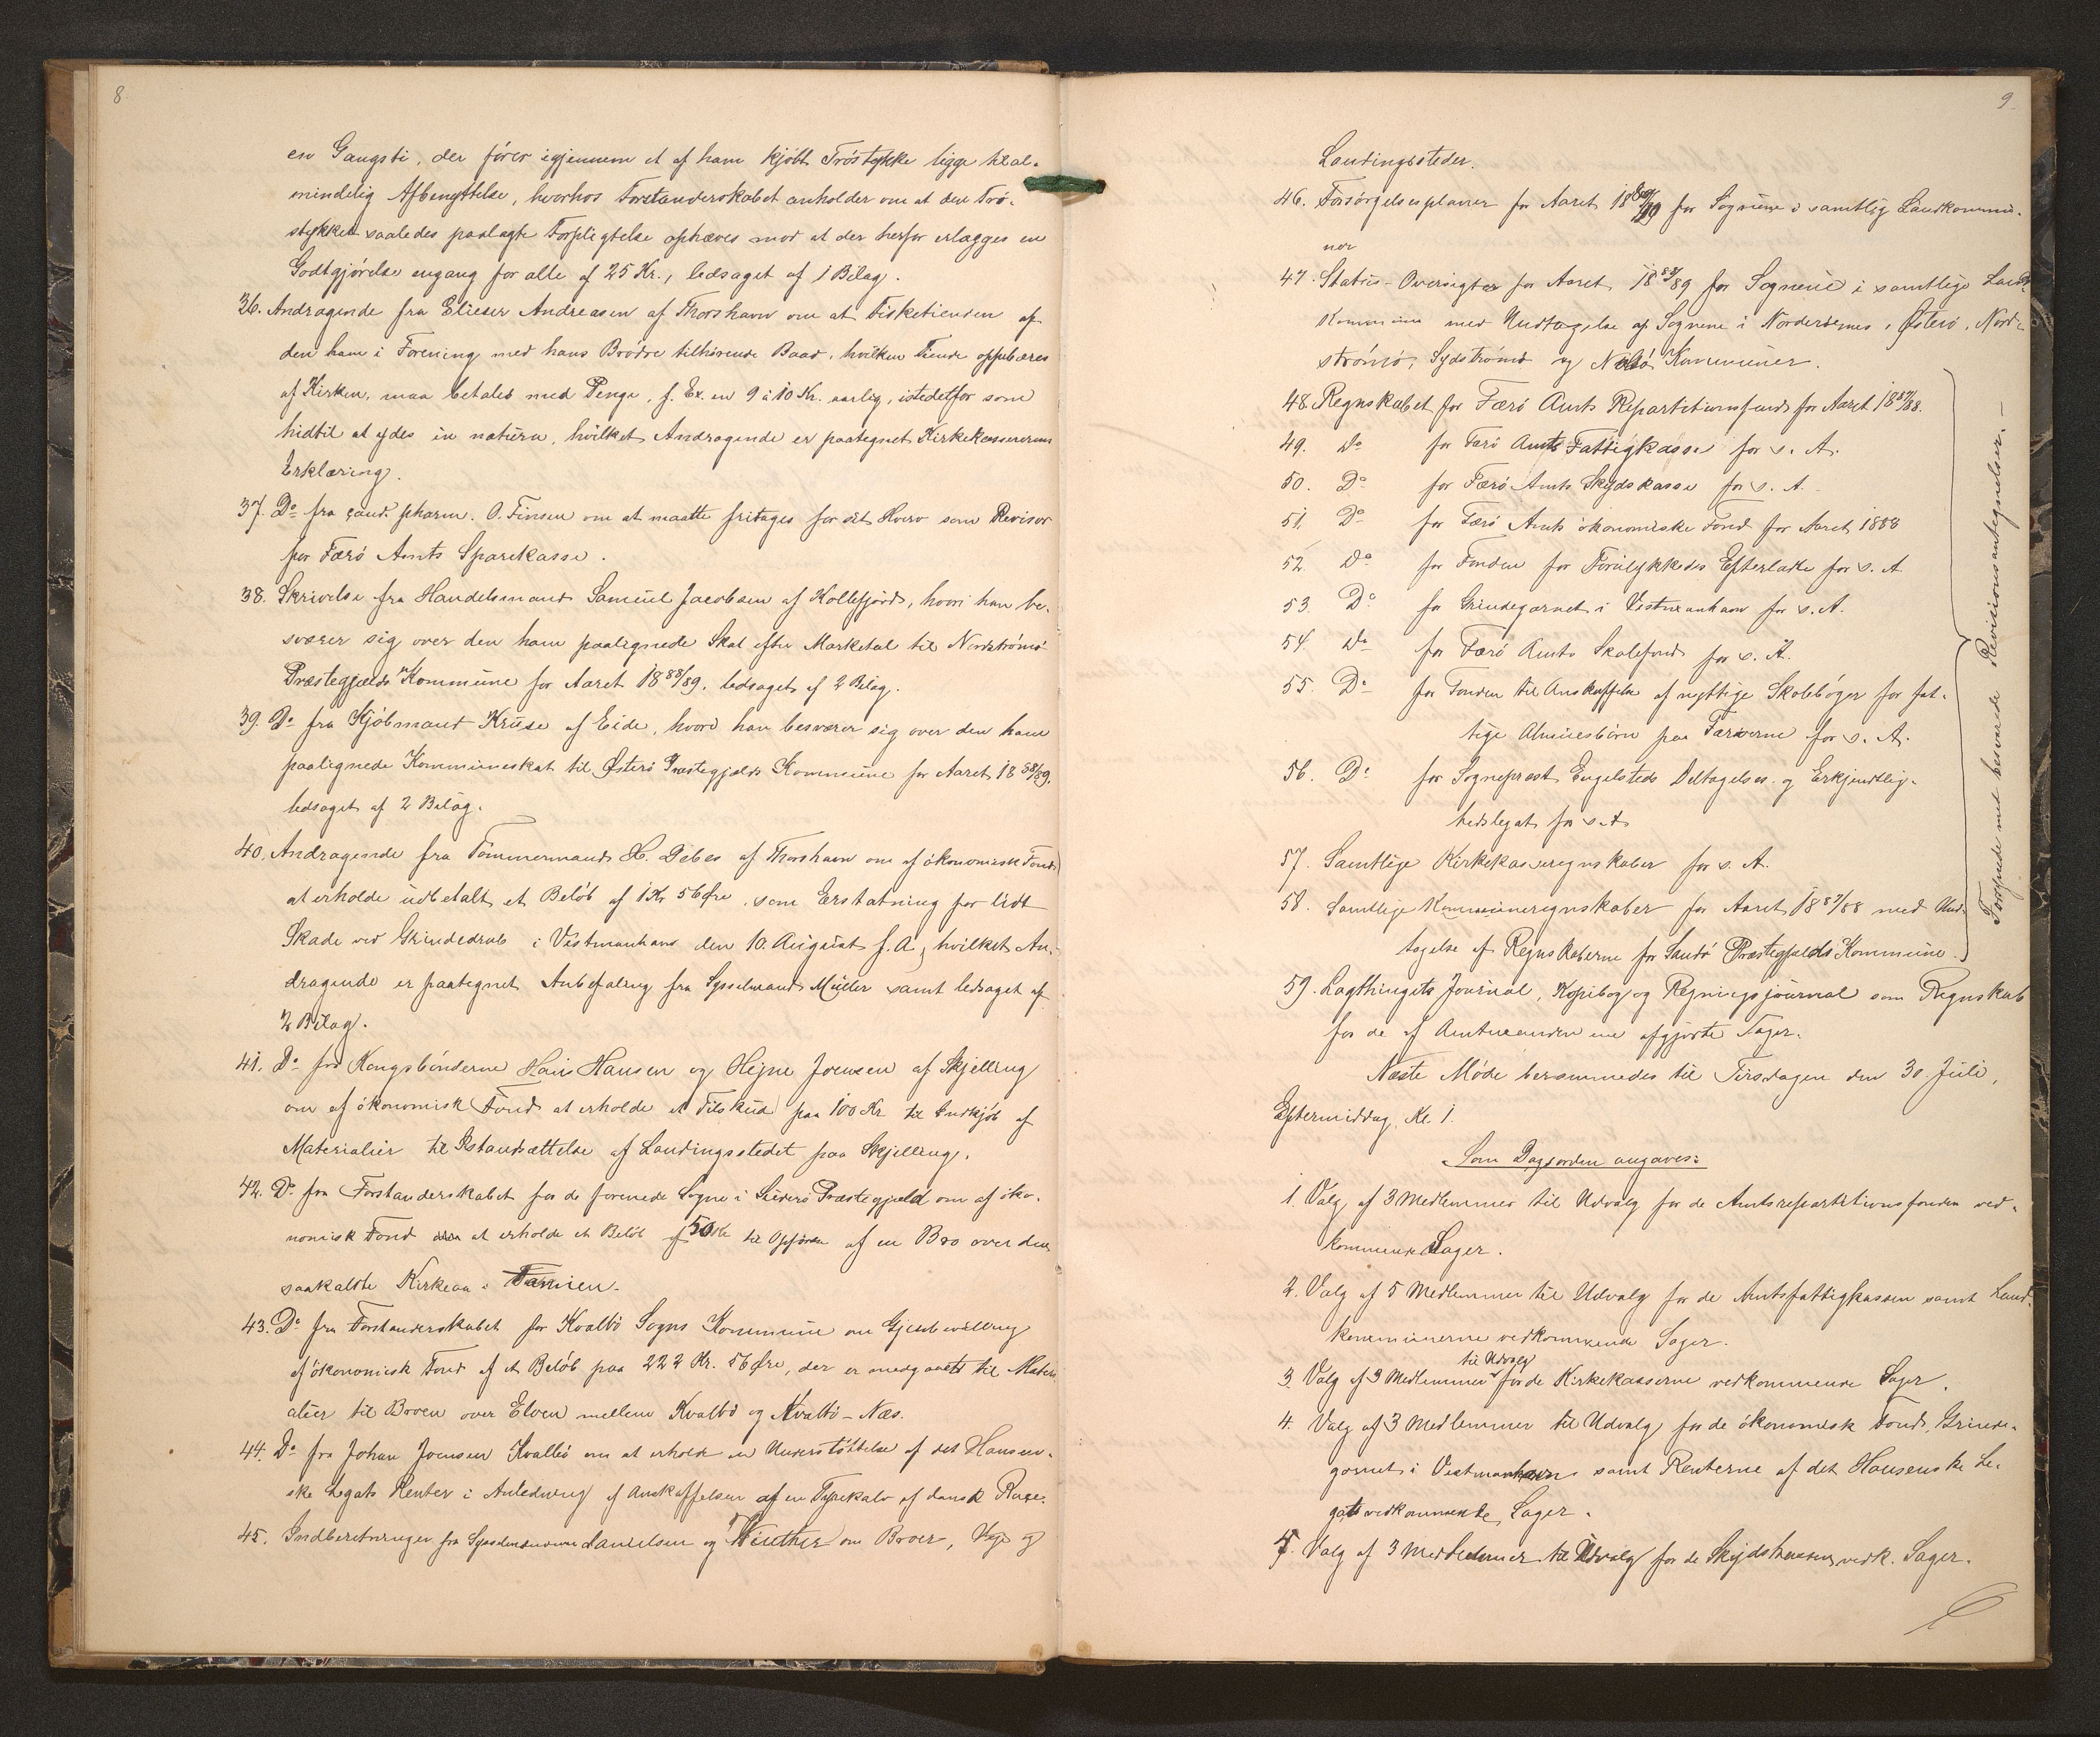 8.
en Gangsti, der fører igjennem et af ham kjøbt Tröstykke ligge til al-
mindelig Afbenyttelse, hvorhos Forstanderskabet anholder om at den Trö-
stykket saaledes paalagte Forpligtelse ophæves mod at der herfor erlægges en
Godtgjörelse engang for alle af 25 Kr., ledsaget af 1 Bilag.
36. Andragende fra Elieser Andreasen af Thorshavn om at Fisketienden af
den ham i Forening med hans Brödre tilhörende Baad, hvilken Tiende oppebæres
af Kirken, maa betales med Penge, f. Ex. en 9 à 10 Kr. aarlig, istedetfor som
hidtil at ydes in natura, hvilket Andragende er paategnet Kirkekassererens
Erklæring.
37. Do fra cand. pharm. O. Finsen om at maatte fritages for sit Hverv som Revisor
for Færö Amts Sparekasse.
38. Skrivelse fra Handelsmand Samuel Jacobsen af Kollefjord, hvori han be-
sværer sig over den ham paalignede Skat efter Marketal til Nordströmö
Præstegjælds Kommune for Aaret 1888/89, ledsaget af 2 Bilag.
39. Do fra Kjöbmand Kruse af Eide, hvori han besværer sig over den ham
paalignede Kommuneskat til Østerö Præstegjælds Kommune for Aaret 1888/89,
ledsaget af 2 Bilag.
40. Andragende fra Tömmermand H. Debes af Thorshavn om af ökonomisk Fond
at erholde udbetalt et Belöb af 1 Kr 56 Øre, som Erstatning for lidt
Skade ved Grindedrab i Vestmanhavn den 10. August f. A., hvilket An-
dragende er paategnet Anbefaling fra Sysselmand Müller samt ledsaget af
2 Bilag.
41. Do fra Kongsbönderne Hans Hansen og Hejne Joensen af Skjelling
om af ökonomisk Fond at erholde et Tilskud paa 100 Kr til Indkjöb af
Materialier til Istandsættelse af Landingsstedet paa Skjelling.
42. Do fra Forstanderskabet for de forenede Sogne i Suderö Præstegjæld om af öko-
nomisk Fond at erholde et Belöb af 50 Kr til Opförelse af en Bro over den
saakaldte Kirkeaa i Famien.
43. Do fra Forstanderskabet for Kvalbö Sogns Kommune om Gjenbevilling
af ökonomisk Fond af et Belöb paa 222 Kr. 56 Øre, der er medgaaet til Materi-
alier til Broen over Elven mellem Kvalbö og Kvalbö-Næs.
44. Do fra Johan Joensen Kvalbö om at erholde en Understöttelse af det Hansen-
ske Legats Renter i Anledning af Anskaffelsen af en Tyrekalv af dansk Race.
45. Indberetninger fra Sysselmændene Danielsen og Winther om Broer, Veje og
9.
Landingssteder.
46. Forsörgelsesplaner for Aaret 1889/90 for Sognene i samtlige Landkommu-
ner
47. Status-Oversigter for Aaret 1888/89 for Sognene i samtlige Land-
kommuner med Undtagelse af Sognene i Norderöernes, Österö, Nord-
strömö, Sydströmö og Nolsö Kommuner.
48. Regnskabet for Færö Amts Repartitionsfond for Aaret 1887/88.
49. Do for Færö Amts Fattigkasse for s. A.
50. Do for Færö Amts Skydskasse for s. A.
51. Do for Færö Amts ökonomiske Fond for Aaret 1888
52. Do for Fonden for Forulykkedes Efterladte for s. A
53. Do for Grindegarnet i Vestmanhavn for s. A.
54. Do for Færö Amts Skolefond for s. A.
55. Do for Fonden til Anskaffelse af nyttige Skoleböger for fat-
tige Almuesbörn paa Færöerne for s. A.
56. Do for Sognepræst Engelsteds Deltagelses- og Erkjendtlig-
hedslegat for s. A
57. Samtlige Kirkekasseregnskaber for s. A.
58. Samtlige Kommuneregnskaber for Aaret 1887/88 med Und-
tagelse af Regnskaberne for Sandö Præstegjælds Kommune.
Forsynede med besvarede Revisionsantegnelser.-
59. Lagthingets Journal, Kopibog og Regningsjournal som Regnskab
for de af Amtmanden ene afgjorte Sager.
Næste Möde berammedes til Tirsdagen den 30. Juli,
Eftermiddag Kl. 1.
Som Dagsorden angaves:
1. Valg af 3 Medlemmer til Udvalg for de Amtsrepartitionsfonden ved-
kommende Sager.
2. Valg af 5 Medlemmer til Udvalg for de Amtsfattigkassen samt Land-
kommunerne vedkommende Sager.
3. Valg af 3 Medlemmer til Udvalg for de Kirkekasserne vedkommende Sager.
4. Valg af 3 Medlemmer til Udvalg for de ökonomisk Fond, Grinde-
garnet i Vestmanhavn samt Renterne af det Hansenske Le-
gat vedkommende Sager.
5. Valg af 3 Medlemmer til Udvalg for de Skydskassen vedk. Sager.